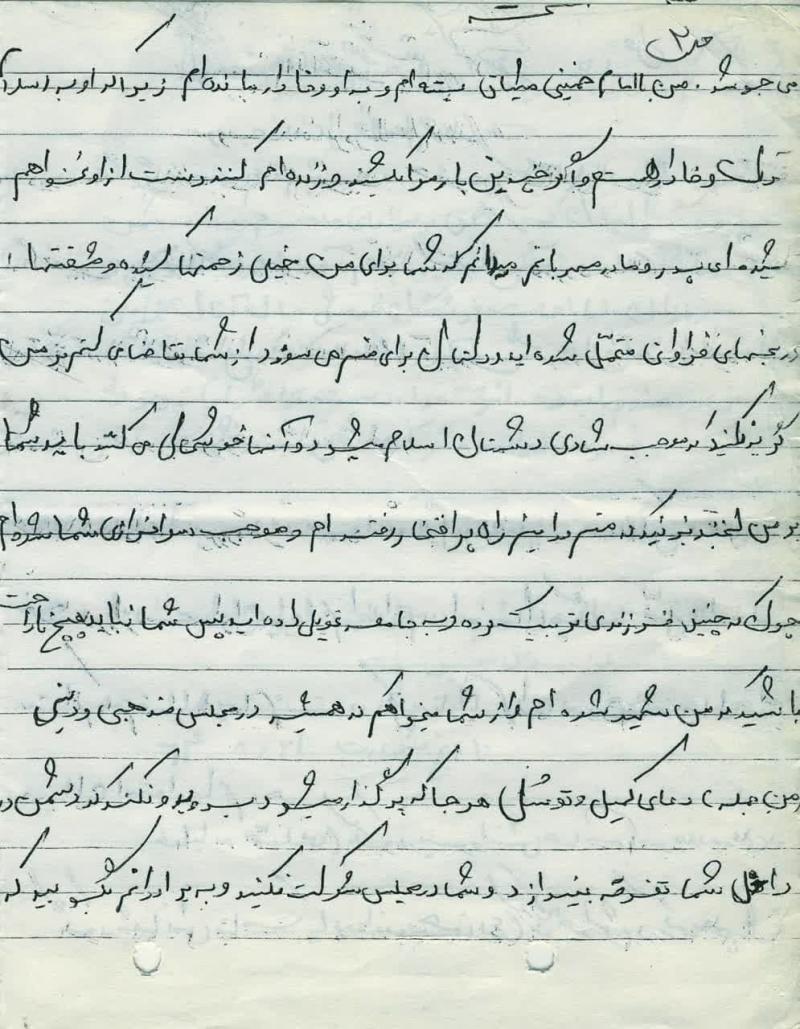 ص ۲
می جوشد. من با امام خمینی میثاق بسته ام و به او وفادار مانده ام زیرا که او به اسلام
قرآن وفادار هست و اگر چندین بار مرا بکشند و زنده ام کنند دست از او نخواهم
شید. ای پدر و مادر مهربانم میدانم که شما برای من خیلی زحمتها کشیده و مشقتها
و رنجهای فراوانی متحمل شده اید از شما تقاضای کنم بر من
گریه نکنید که موجب شادی دشمنان اسلام میشود و آنها خوشحال می کنند باید شما
بر من لبخند بزنید که منم در این راه پر افتخار رفته ام و موجب سرافرازی شما شده ام
چون که چنین فرزندی تربیت کرده و به جامعه تحویل داده اید پس شما نباید هیچ ناراحت
باشید که من شهید شده ام و از شما میخواهم که همیشه در مجلس مذهبی و دینی
(من جمله) دعای کمیل و توسل) هر جا که برگذار میشود بروید و نکند که دشمن در
داخل شما تفرقه بیندازد و شما در مجلس شرکت نکنید و به برادرانم بگویید که